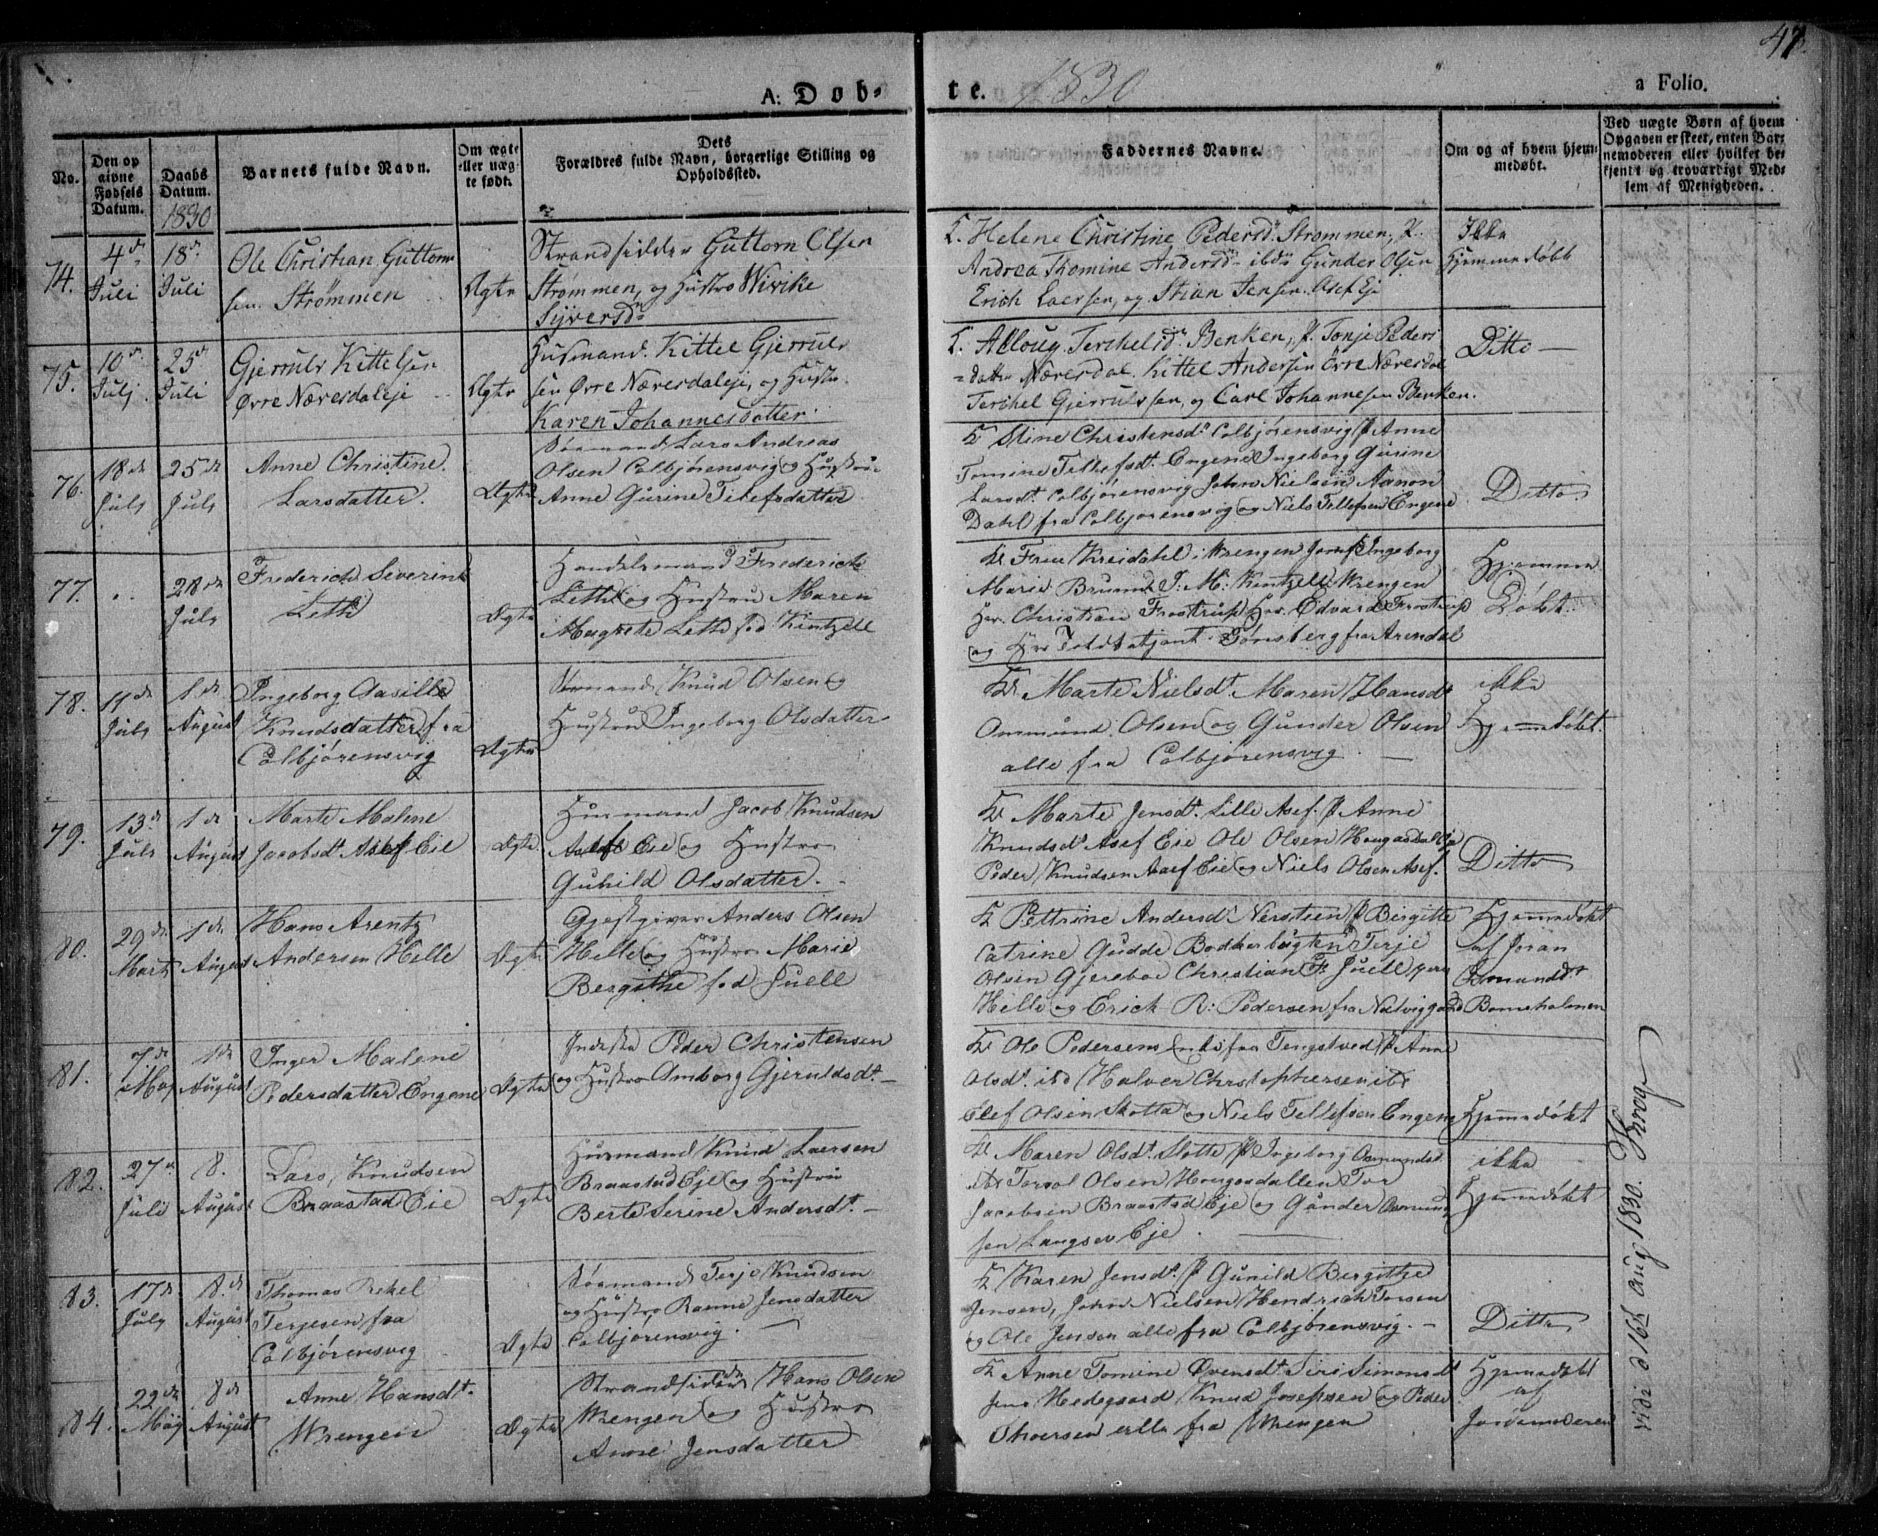 47.
A: Døb-
te. 1830
a Folio.
No.
Den op
givne
Fødsels
Datum.
Daabs
Datum.
1830
Barnets fulde Navn.
Om ægte
eller uæg-
te født.
Dets
Forældres fulde Navn, borgerlige Stilling og
Opholdssted.
Faddernes Navne.
Om og af hvem hjem-
medøbt.
Ved uægte Børn af hvem
Opgaven er skeet, enten Bar-
nemoderen eller hvilket be-
kjendt og troværdigt Med-
lem af Menigheden.
74.
4de
Juli
18de
Juli
Ole Christian Guttorm
sen Strømmen
Ægte
Strandsidder Guttorn Olsen
Strømmen, og Hustro Wivike
Syversd.
K. Helene Christine Pedersd. Strømmen, P.
Andrea Thomine Andersd. ibd. Gunder Olsen
Erich Laersen, og Stian Jensen Asef Eje
Ikke
Hjemmedøbt
75.
10de
Julj
25de
Juli
Gjerruls Kittelsen
Øvre Næresdaleje
Ægte
Husmand Kittel Gjerruls
sen Øvre Næresdaleje, og Hustro
Karen Johannesdatter.
K. Alloug Terchelsd. Benken, P. Tonje Peders
datter Næresdal, Kittel Andersen Øvre Næresdal
Terchel Gjerrulssen, og Carl Johannesen Benken.
Ditto
76.
18de
July
25de
July
Anne Christine
Larsdatter.
Ægte
Sørmand Lars Andreas
Olsen Colbjørensvig og Hustru
Anne Gurine Tellefsdatter
K Stine Christensdt. Colbjørensvig P Anne
Tomine Tellefsdt. Engene Ingeborg Gurine
Larsdt. Colbjørensvig John Nielsen Aanon
Dahl fra Colbjørensvig og Niels Tellefsen Engene
Ditto
77.
28de
July
Frederich Severin
Leth
Ægte
Handelsmand Frederich
Leth og Hustru Maren
Magrete Leth fød Kintzell
K. Frue Kreidahl i Wrengen Jomf Ingeborg
Marie Bruun J. M. Kintzell Wrengen
Hr. Christian Frostrup Hr. Edvard Frostrup
og Hr. Tønsberg fra Arendal
Hjemme
Døbt
78.
11de
July
1de
August
Ingeborg Aasille
Knudsdatter fra
Colbjørensvig
Ægte
Sørmand Knud Olsen og
Hustru Ingeborg Olsdatter
K. Marte Nielsdt. Maren Hansdt
Ommund Olsen og Gunder Olsen
alle fra Colbjørensvig
ikke
Hjemmedøbt.
79.
13de
July
1de
August
Marte Malene
Jacobsdt Asef Eie
Ægte
Husmand Jacob Knudsen
Asef Eie og Hustro
Guhild Olsdatter.
K Marte Jensdt. Lille Asef. P Anne
Knudsdt Asef Eie Ole Olsen Hougasdal Eje
Peder Knudsen Asef Eie og Niels Olsen Asef.
Ditto
80.
29de
Marts
1de
August
Hans Arentz
Andersen Helle
Ægte
Gjestgiver Anders Olsen
Helle og Hustro Marie
Bergithe fød Juell
K Pettrine Andersdt. Nersteen P Birgitte
Catrine Gudde Bodkerbugten Terje
Olsen Gjereboe Christian F. Juell
Helle og Erick R: Pedersen fra
Hjemmedøbt
af Joran
Bomeholmen
81.
7de
May
1de
August
Inger Malene
Pedersdatter Engene
Ægte
Inderste Peder Christensen
og Hustro Amborg Gjeruldsdt.
K Ole Pedersens fra Tengstved P Anne
Olsdt. ibd Halver Christophersen ib
Elef Olsen Slotta og Niels Tellefsen Engene
Hjemmedøbt
82.
27de
Juli
8.
August
Lars, Knudsen
Braastad Eie
Ægte
Husmand Knud Laersen
Braastad Eje og Hustru
Berte Serine Andersdt.
K. Maren Olsdt. Slotte P Ingeborg Osmundsdt.
Torsol Olsen Hougasdallen Tor
Jacobsen Braastad Eje og Gunder Osmund
sen Langsev Eje.
ikke
Hjemmedøbt
83.
17de
July
8de
August
Thomas
Terjesen fra
Colbjørensvig
Ægte
Sørmand Terje Knudsen
og Hustro Jensdatter
Colbjørensvig.
K Karen Jensdt. P Gunild Bergithe
Jensen, John Nielsen Hendrich Torsen
og Ole Jensen alle fra Colbjørensvig.
Ditto
84.
22de
May
8de
August
Anne Hansdt.
Wrengen
Ægte
Strandsidder Hans Olsen
Wrengen og Hustro
Anne Jensdatter
K Anne Tomine Øvensdt Siri Simonsdt
Jens Hedegaard Knud Josepsen og Peder
Thoersen alle fra Wrengen
Hjemmedøbt
af
Jordemoderen
vidi d 16de aug 1830. Krog